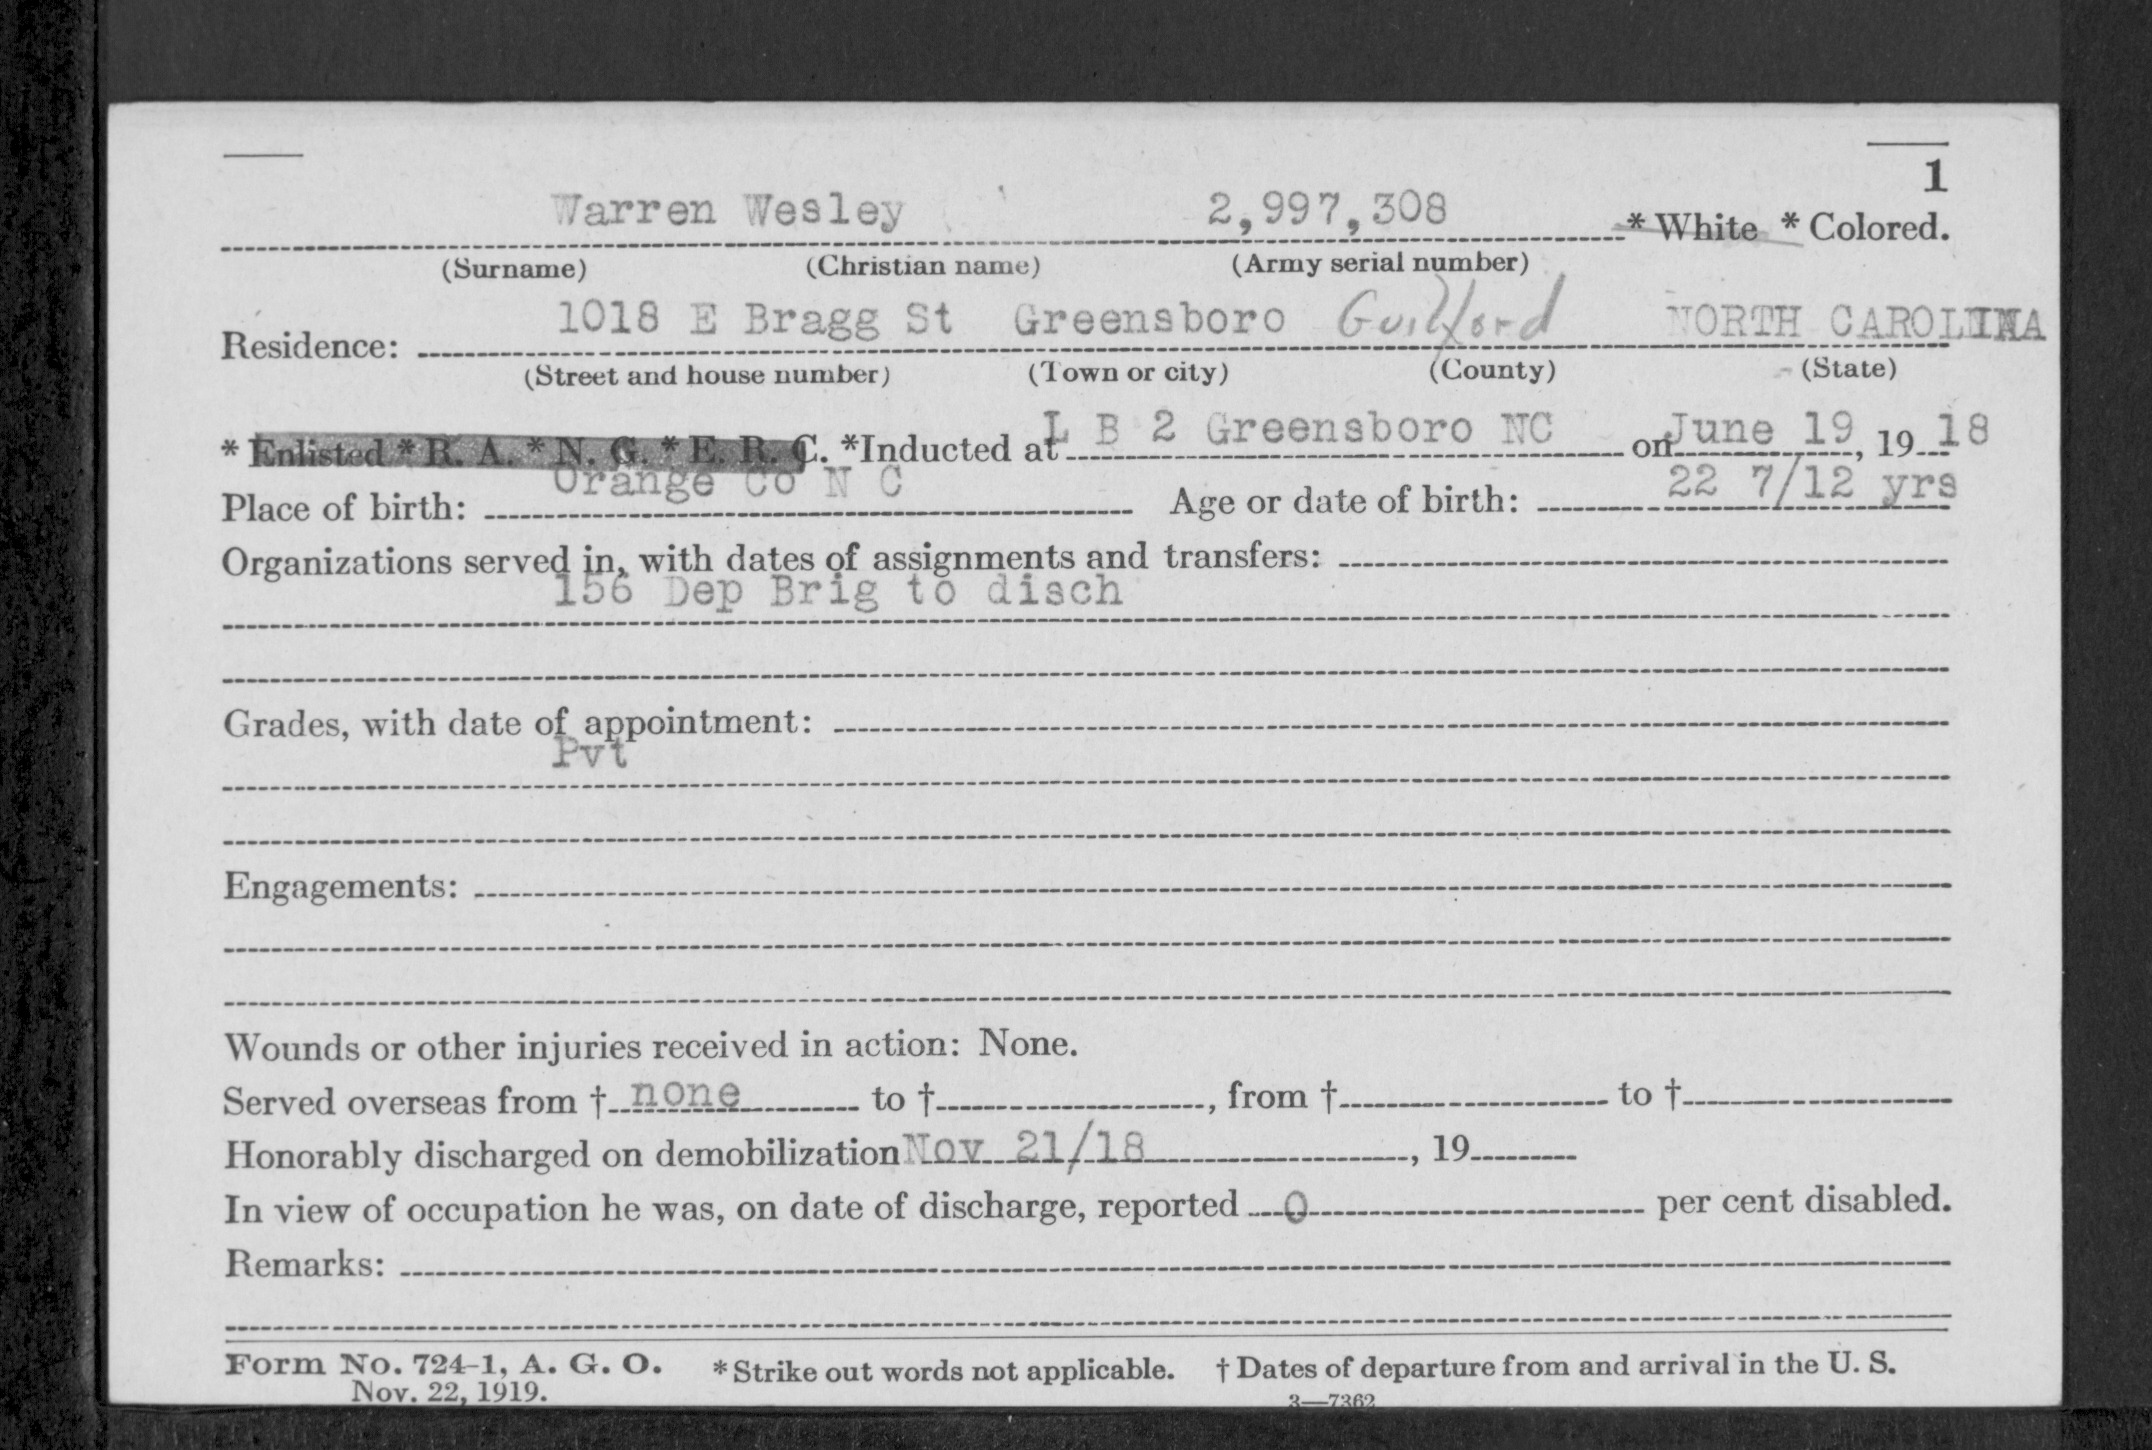 1
Warren Wesley 2,997,308 * White * Colored.
(Surname) (Christian name) (Army serial number)
1018 E Bragg St Greensboro Guilford NORTH CAROLINA
Residence:
(Street and house number) (Town or city) (County) (State)
* Enlisted * R. A. * N. G. * E. R. C. *Inducted at L B 2 Greensboro NC on June 19, 1918
Place of birth: Orange Co N C Age or date of birth: 22 7/12 yrs
Organizations served in, with dates of assignments and transfers:
156 Dep Brig to disch
Grades, with date of appointment:
Pvt
Engagements:
Wounds or other injuries received in action: None.
Served overseas from † none to †, from † to †
Honorably discharged on demobilization Nov 21/18, 19
In view of occupation he was, on date of discharge, reported 0 per cent disabled.
Remarks:
Form No. 724-1, A. G. O. * Strike out words not applicable. † Dates of departure from and arrival in the U. S.
Nov. 22, 1919. 3—7362